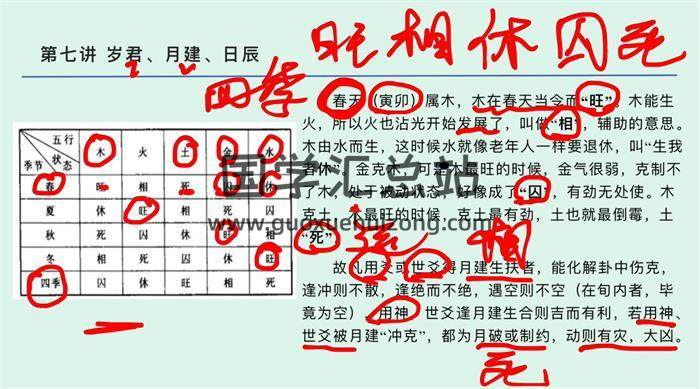 第七讲 岁君、月建、日辰
旺相休囚死
四季
五行
状态
季节
木 火 土 金 水
春 旺 相 死 囚 休
夏 休 旺 相 死 囚
秋 死 囚 休 旺 相
冬 相 死 囚 休 旺
四季 囚 休 旺 相 死
春天（寅卯）属木，木在春天当令而“旺”。木能生
火，所以火也沾光开始发展了，叫做“相”，辅助的意思。
木由水而生，这时候水就像老年人一样要退休，叫“生我
者休”，金克木，可是木最旺的时候，金气很弱，克制不
了木，处于被动状态，好像成了“囚”，有劲无处使。木
克土，木最旺的时候，克土最有劲，土也就最倒霉，土
“死”
故凡用爻或世爻得月建生扶者，能化解卦中伤克，
逢冲则不散，逢绝而不绝，遇空则不空（在旬内者，毕
竟为空）。用神、世爻逢月建生合则吉而有利，若用神、
世爻被月建“冲克”，都为月破或制约，动则有灾，大凶。
死
国学汇总站
www.guoxuehuizong.com